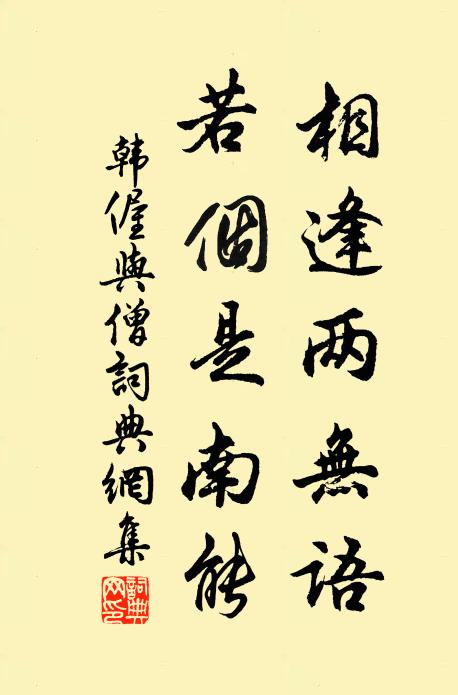 相逢两無語
若個是南能
韓偓與僧詞典網集
詞典网印